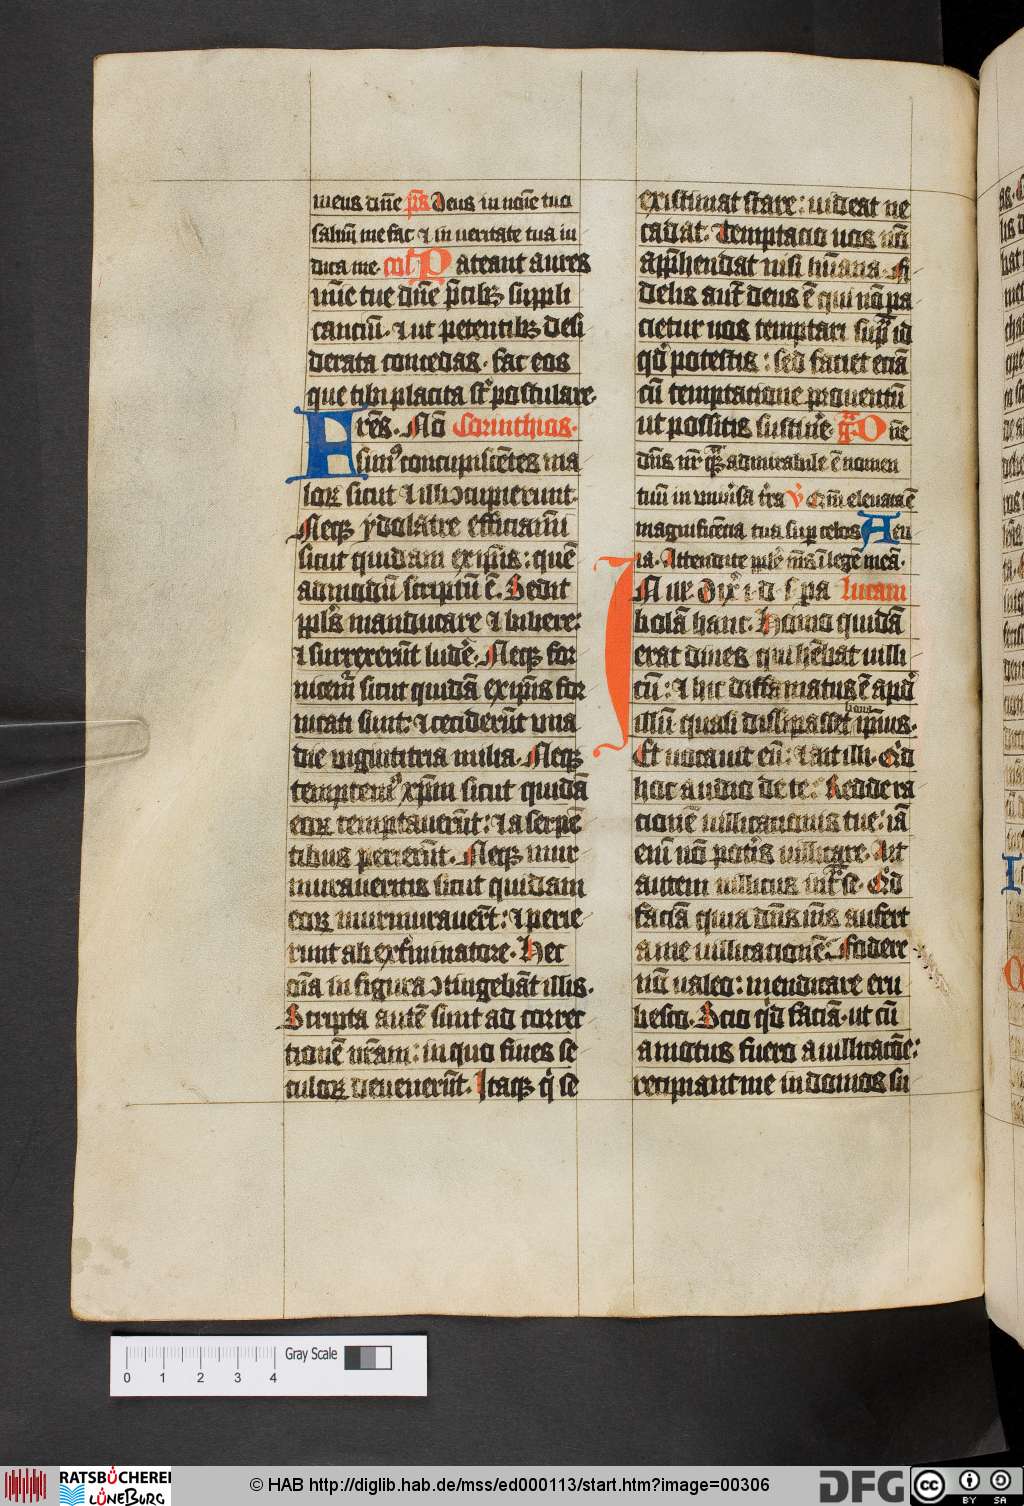 meus dn̄e p̄s Deus in no̅ie tuo
saluu̅ me fac ⁊ in veritate tua iu
dica me· coll̄ Pateant aures
mīe tue dn̄e p̄cibꝫ suppli
canciu̅· ⁊ ut petentibꝫ desi
derata concedas· fac eos
que tibi placita st̄ postulare·
Fr̄es· No̅ Corinthios·
simꝰ concupisce̅tes ma
loꝝ sicut ⁊ illi ↄcupierunt·
Neqꝫ ydolatre efficiam̅i
sicut quidam ex ip̄is: que̅
admodu̅ scriptu̅ e̅· Sedit
ppl̄s manducare ⁊ bibere:
⁊ surrexeru̅t lude̅· Neqꝫ for
nicem̅ sicut quida̅ ex ip̄is for
nicati sunt: ⁊ cecideru̅t una
die viginti tria milia· Neqꝫ
temptemꝰ xp̄m sicut quida̅
eoꝝ temptaueru̅t: ⁊ a serpe̅
tibus perieru̅t· Neqꝫ mur
muraueritis sicut quidam
eoꝝ murmurauer̅t: ⁊ perie
runt ab ext̄minatore· Hec
o̅ia in figura ↄtingeba̅t illis·
Scripta aute̅ sunt ad correc
tione̅ nr̄am: in quo fines se
culoꝝ deueneru̅t· Itaqꝫ q̇ se
existimat stare: uideat ne
cadat· Temptacio uos no̅
app̄hendat nisi hu̅ana· Fi
delis aut̄ deus e̅ qui no̅ pa
cietur uos temptari sup̄ id
qd̛ potestis: sed faciet ecia̅
cu̅ temptacione prouentu̅
ut possitis sustine̅· gͣ Dn̄e
dn̄s nr̄ qͣꝫ admirabile e̅ nomen
tuu̅ in uniưsa t̛ra V̛ Qm̄ eleuata e̅
magnificencia tua sup celos Aeu
ia· Attendite pple̛ m̅s i̅ lege̅ mea̅·
IN ill̛ Dix̛ i· d· s· pa lucam
bola̅ hanc· Homo quida̅
erat diues qui he̅bat uilli
cu̅: ⁊ hic diffamatus e̅ apd̛
illu̅ quasi dissipasset bona ip̄ius·
Et uocauit eu̅: ⁊ ait illi· Qͥd
hoc audio de te: Redde ra
cione̅ uillicacionis tue: ia̅
eni̅ no̅ pot̛is uillicare· Ait
autem uillicus int̛ se· Qͥd
facia̅ quia dn̄s m̅s aufert
a me uillicatione̅: Fodere
no̅ ualeo: mendicare eru
besco· Scio qͥd facia̅· ut cu̅
amotus fuero a uillicaco̅e:
recipiant me in domos su
Gray Scale
0 1 2 3 4
RATSBÜCHEREI
LÜNEBURG
© HAB http://diglib.hab.de/mss/ed000113/start.htm?image=00306
DFG
cc BY SA